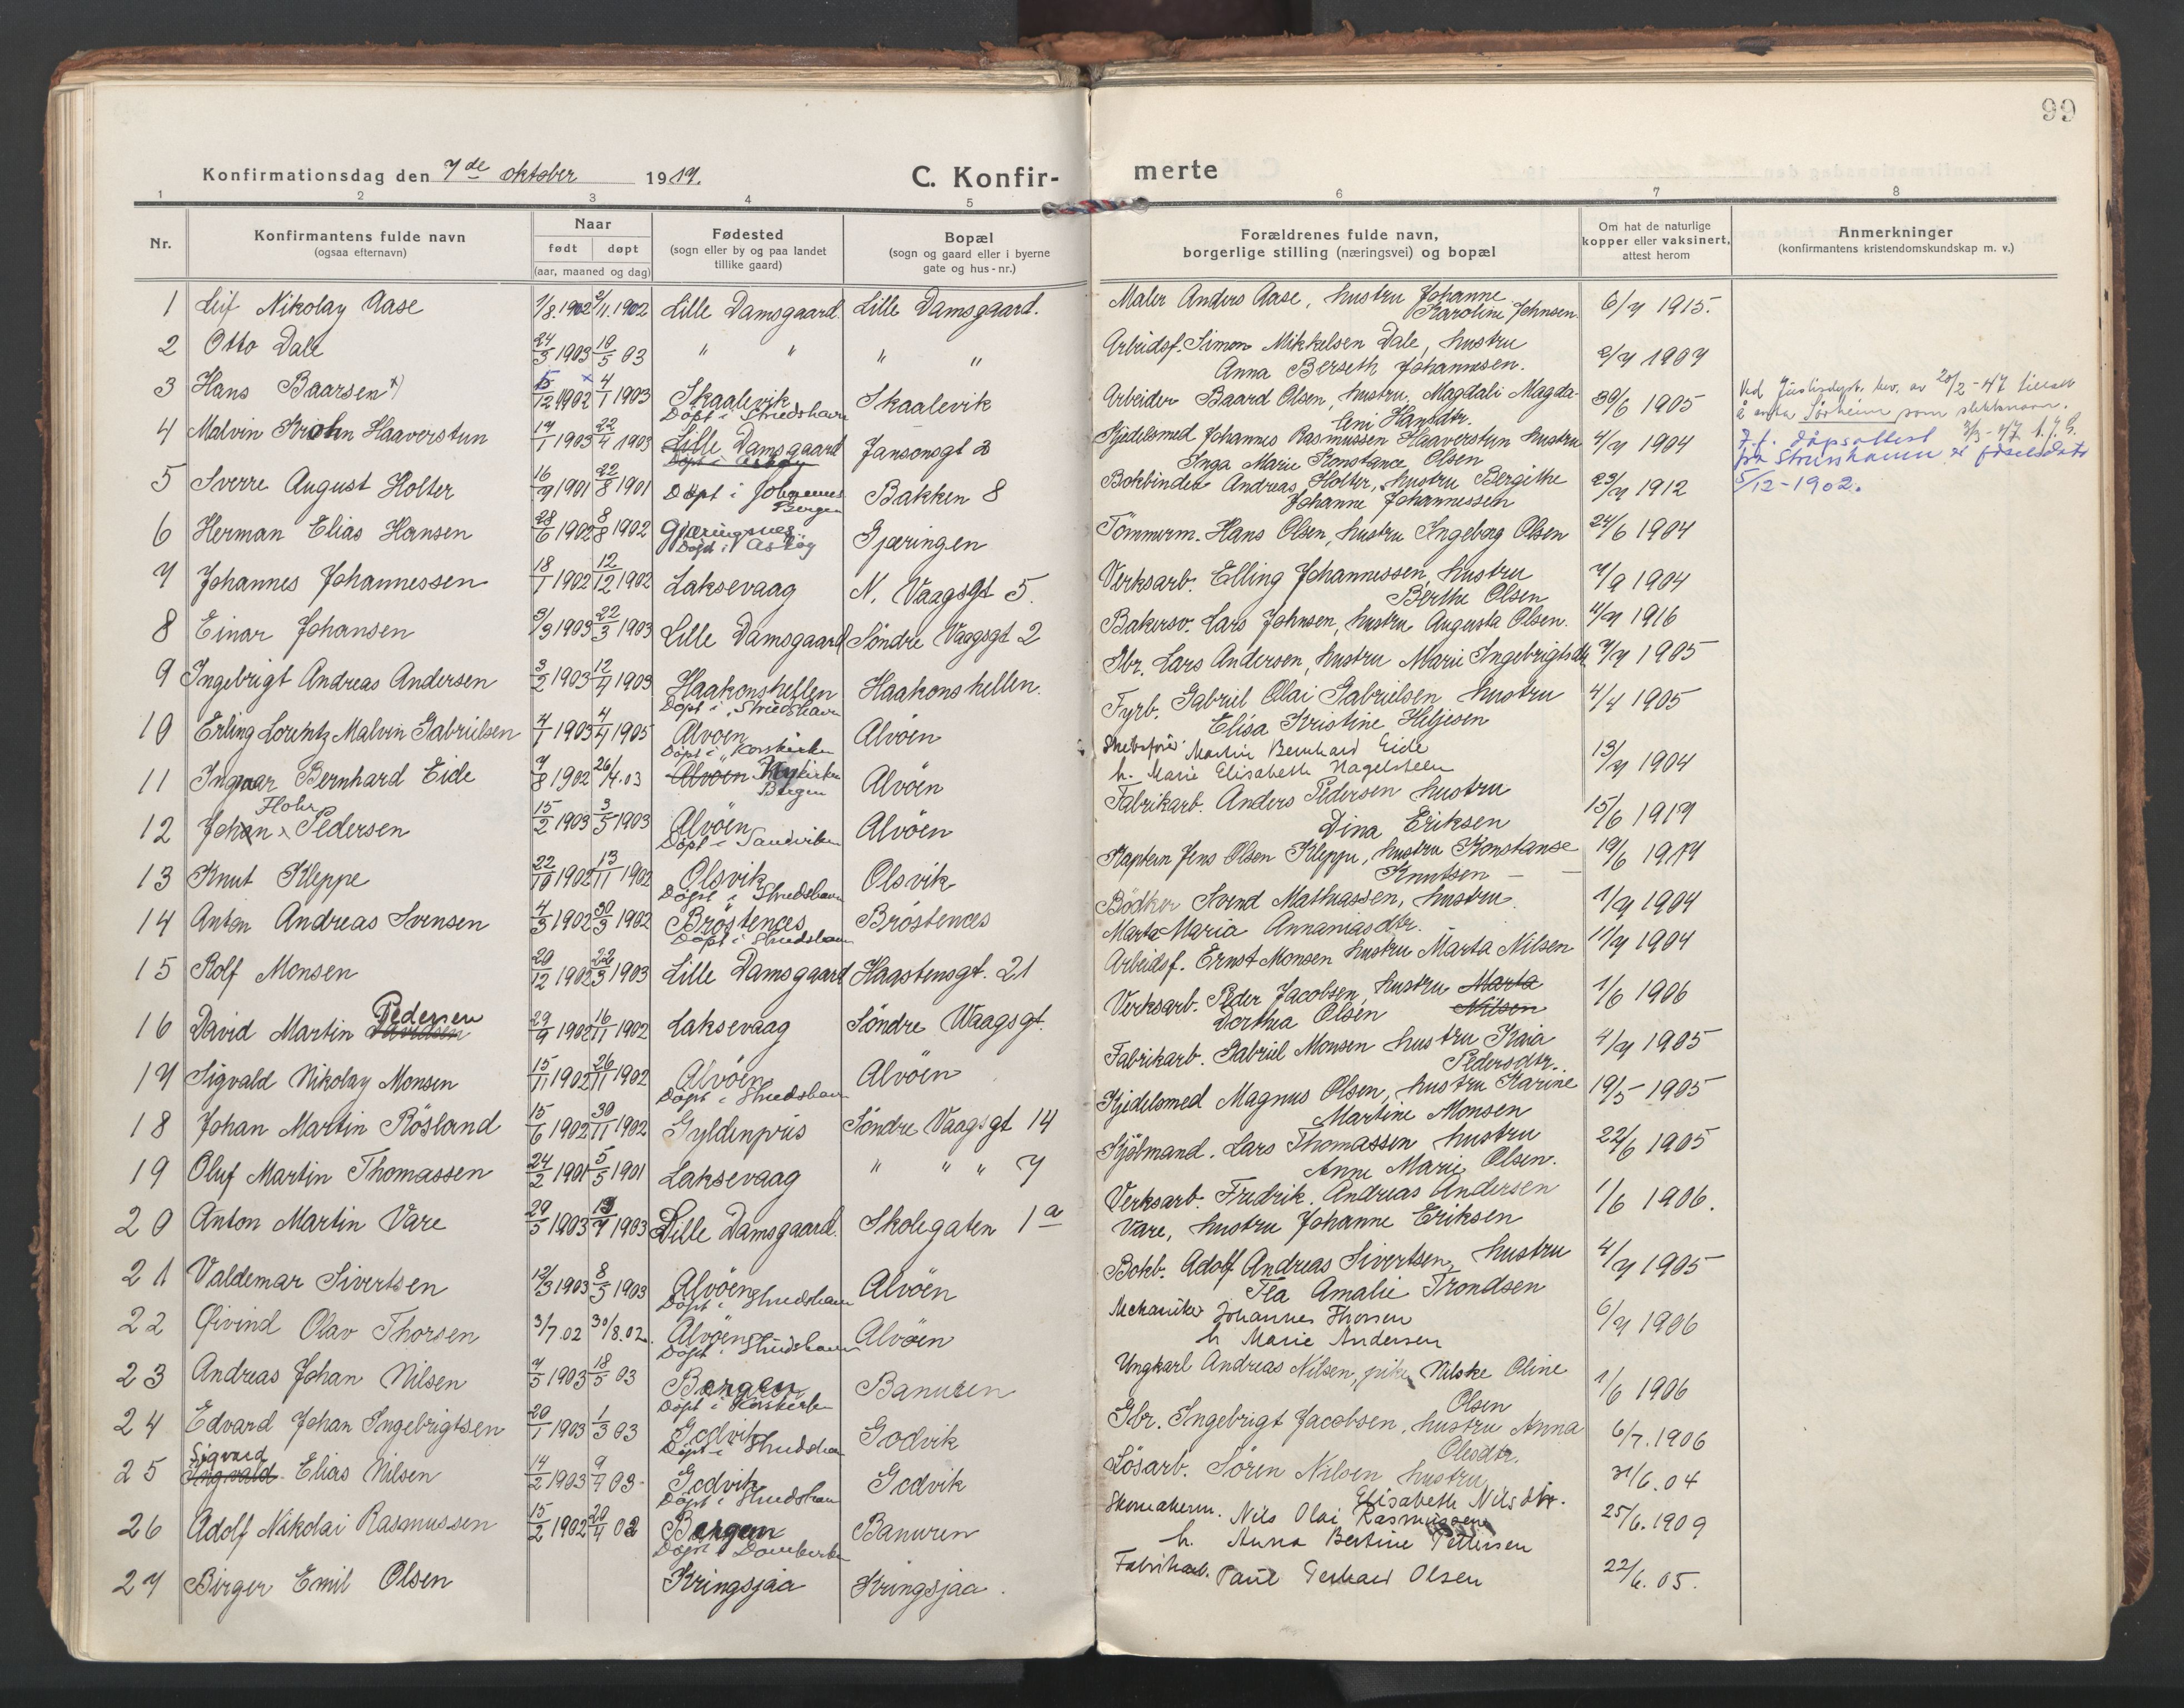 99
Konfirmationsdag den 7de oktober 1917.
C. Konfir-
merte
1 2 3 4 5 6 7 8
Nr.
Konfirmantens fulde navn
(ogsaa efternavn)
Naar
født døpt
(aar, maaned og dag)
Fødested
(sogn eller by og paa landet
tillike gaard)
Bopæl
(sogn og gaard eller i byerne
gate og hus-nr.)
Forældrenes fulde navn,
borgerlige stilling (næringsvei) og bopæl
Om hat de naturlige
kopper eller vaksinert,
attest herom
Anmerkninger
(konfirmantens kristendomskundskap m. v.)
1 Leif Nikolay Aase 1/8.1902 2/11.1902 Lille Damsgaard. Lille Damsgaard. Maler Anders Aase, hustru Johanne
Karoline Johnsen. 6/7 1915.
2 Otto Dale 24/3 1903 10/5 03 " " " " Arbeidsf. Simon Mikkelsen Dale, hustru
Anna Berseth Johannesen. 2/7 1907
3 Hans Baarsen x) 15/12 1902 x 4/1 1903 Skaalevik Skaalevik Arbeider Baard Olsen, hustru, Magdali Magda- 30/6 1905
Döbt i Strudshavn
leni Hansdtr.
Ved Justisdept. bev. av 20/2-47 tillatt
å anta Sörheim som slektsnavn.
3/3-47
F.f. dåpsattest
fra Strusshamn er födselsdato
5/12-1902.
4 Malvin Krohn Haaverstun 17/1 1903 22/4 1903 Lille Damsgaard Jansonsgt 3 Kjedelsmed Johannes Rasmussen Haaverstun hustru 4/7 1904
Döbt i Asköy
Inga Marie Konstance Olsen
5 Sverre August Holter 16/7 1901 22/8 1901 Döpt i Johannes Bakken 8 Bokbinder Andreas Holter, hustru Bergithe 23/7 1912
Bergen
Johanne Johannessen
6 Herman Elias Hansen 28/6 1902 8/8 1902 Gjæringnes Gjæringen Tömmerm. Hans Olsen, hustru Ingeborg Olsen 24/6 1904
Döpt i Asköy
7 Johannes Johannessen 18/1 1902 12/12 1902 Laksevaag N. Vaagsgt 5. Verksarb. Elling Johannessen, hustru 7/9 1904
Berthe Olsen
8 Einar Johansen 3/3 1903 22/3 1903 Lille Damsgaard Söndre Vaagsgt 2 Bakersv. Lars Johnsen, hustru Augusta Olsen. 4/7 1916
9 Ingebrigt Andreas Andersen 3/2 1903 12/4 1903 Haakonshellen Haakonshellen. Gbr. Lars Andersen, hustru Marie Ingebrigtsdtr 7/7 1905
Döpt i Strudshavn
10 Erling Lorentz Malvin Gabrielsen 4/1 1903 4/4 1905 Alvöen Alvöen Fyrb. Gabriel Olai Gabrielsen hustru 4/7 1905
Döpt i Korskirken
Elisa Kristine Hiljesen
11 Ingvar Bernhard Eide 7/8 1902 26/4.03 Alvöen Nykirken Alvöen Martin Bernhard Eide 13/7 1904
Bergen
h. Marie Elisabeth Hagelsteen
Flohr
12 Johan x Pedersen 15/2 1903 3/5 1903 Alvöen Alvöen Fabrikarb. Anders Pedersen hustru 15/6 1917
Döpt i Sandviken
Dina Eriksen
13 Knut Kleppe 22/10 1902 13/11 1902 Olsvik Olsvik Kaptein Jens Olsen Kleppe, hustru Konstanse 19/6 1917
Döpt i Strudshavn
Knutsen
14 Anton Andreas Svensen 4/3 1902 30/3 1902 Bröstenæs Bröstenæs Bödker Svend Mathiassen, hustru. 1/7 1904
Döpt i Strudshavn
Marta Maria Annaniasdtr.
15 Rolf Monsen 20/12 1902 22/3 1903 Lille Damsgaard Haastensgt. 21 Arbeidsf. Ernst Monsen hustru Marta Nilsen 11/7 1904
Pedersen
16 David Martin Davidsen 29/9 1902 16/11 1902 Laksevaag Söndre Waagsgt. Verksarb. Peder Jacobsen, hustru Marta 1/6 1906
Dorthea Olsen Nilsen
17 Sigvald Nikolay Monsen 15/11 1902 26/11 1902 Alvöen Alvöen Fabrikarb. Gabriel Monsen hustru Kaia 4/7 1905
Döpt i Strudshavn
Pedersdtr.
18 Johan Martin Rösland 15/6 1902 30/11 1902 Gyldenpris Söndre Vaagsgt 14 Kjedelsmed Magnus Olsen, hustru Karine 19/5 1905
Martine Monsen
19 Oluf Martin Thomassen 24/2 1901 5/5 1901 Laksevaag " " " 7 Kjölmand. Lars Thomassen hustru 22/6 1905
Anne Marie Olsen.
20 Anton Martin Vare 29/5 1903 19/7 1903 Lille Damsgaard. Skolegaten 1a Verksarb. Fredrik Andreas Andersen 1/6 1906.
Vare, hustru Johanne Eriksen
21 Valdemar Sivertsen 12/3 1903 8/5 1903 Alvöen Alvöen Bokb. Adolf Andreas Sivertsen, hustru 4/7 1905
Döpt i Strudshavn
Tea Amalie Trondsen
22 Öivind Olav Thorsen 3/7.02 30/8.02. Alvöen Alvöen Mekaniker Johannes Thorsen 6/7 1906
Döpt i Strudshavn
h. Marie Andersen
23 Andreas Johan Nilsen 7/5 1903 18/5 03 Bergen Banuren Ungkarl Andreas Nilsen, pike Nilske Oline 1/6 1906
Döpt i Korskirken
Olsen
24 Edvard Johan Ingebrigtsen 20/1 1903 1/3 03 Godvik Godvik Gbr. Ingebrigt Jacobsen, hustru Anna 6/7.1906
Döpt i Strudshavn
Olesdtr.
Sigvard
25 Ingvald Elias Nilsen 14/2 1903 9/4 03 Godvik Godvik Lösarb. Sören Nilsen hustru 21/6.04
Döpt i Strudshavn
Elisabeth Nilsdtr.
26 Adolf Nikolai Rasmussen 15/2 1902 20/4 02 Bergen Banuren Skomakerm. Nils Olai Rasmussen 25/6.1909
Döpt i Domkirken
h. Anna Bertine Pettersen
27 Birger Emil Olsen Kringsjaa Kringsjaa. Fabrikarb. Paul Gerhard Olsen 22/6.05.